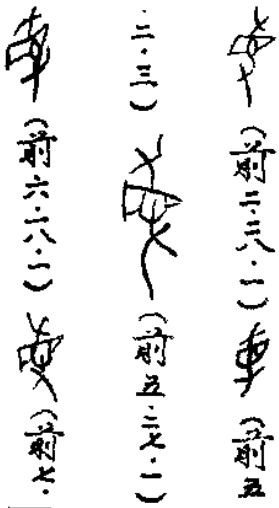 （前二·二八·一）（前五
·二·三）（前五·二七·一）
（前六·二八·一）（前七·